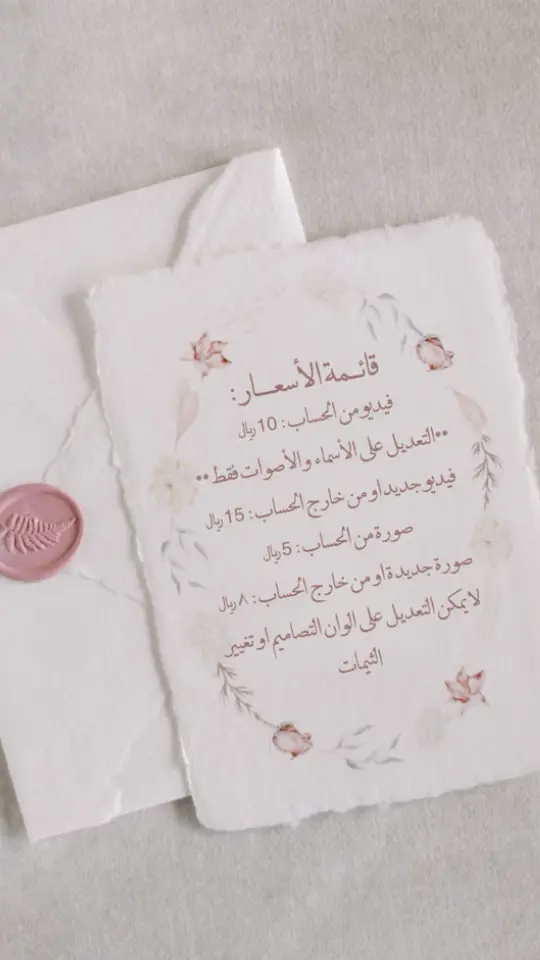 قائـمة الأسعـــار:
فيديو من الحساب: 10 ريال
**التعديل على الأسماء والأصوات فقط**
فيديو جديد او من خارج الحساب: 15 ريال
صورة من الحساب: 5 ريال
صورة جديدة او من خارج الحساب: ٨ ريال
لا يمكن التعديل على الوان التصاميم او تغيير
الثيمات